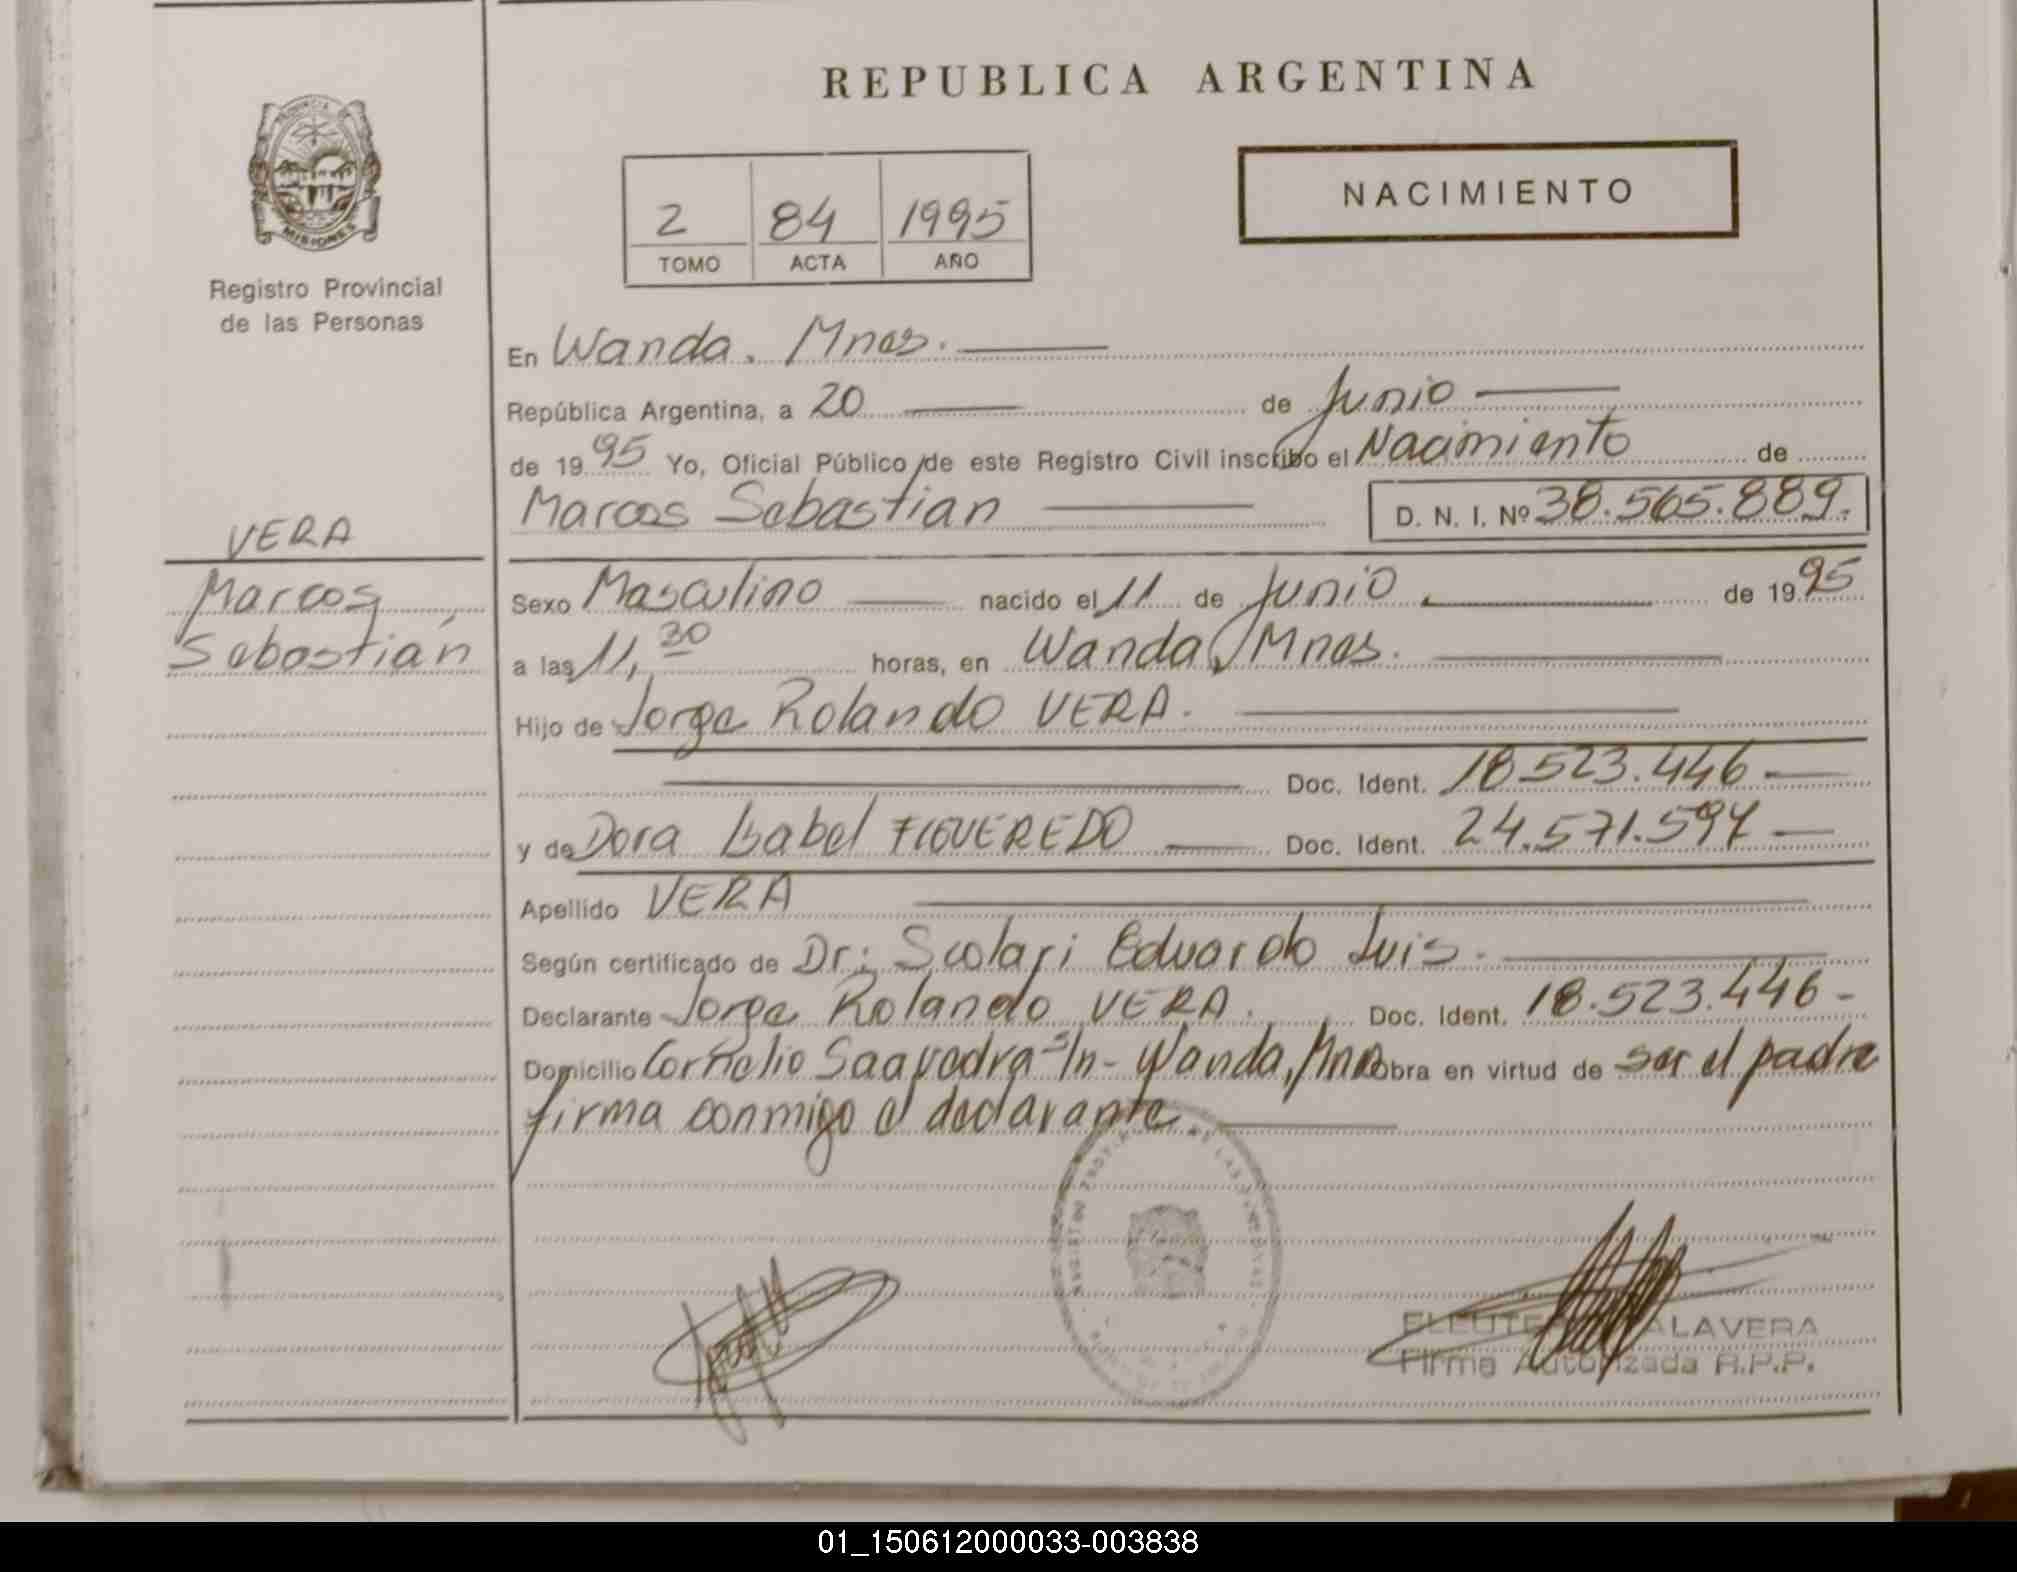 REPUBLICA ARGENTINA
PROVINCIA
MISIONES
Registro Provincial
de las Personas
NACIMIENTO
2 84 1995
TOMO ACTA AÑO
En Wanda. Mnes.
República Argentina, a 20 de Junio
de 1995 Yo, Oficial Público de este Registro Civil inscribo el Nacimiento de
Marcos Sebastian D. N. I. Nº 38.565.889.
VERA
Marcos
Sebastián
Sexo Masculino nacido el 11 de Junio de 1995
a las 11,30 horas, en Wanda, Mnes.
Hijo de Jorge Rolando VERA.
Doc. Ident. 18.523.446
y de Dora Isabel FIGUEREDO Doc. Ident. 24.571.594
Apellido VERA
Según certificado de Dr: Scolari Eduardo Luis.
Declarante Jorge Rolando VERA. Doc. Ident. 18.523.446-
Domicilio Cornelio Saavedra S/n- Wanda, Mnes obra en virtud de ser el padre
firma conmigo el declarante.
ALAVERA
Firma Autorizada R.P.P.
01_150612000033-003838